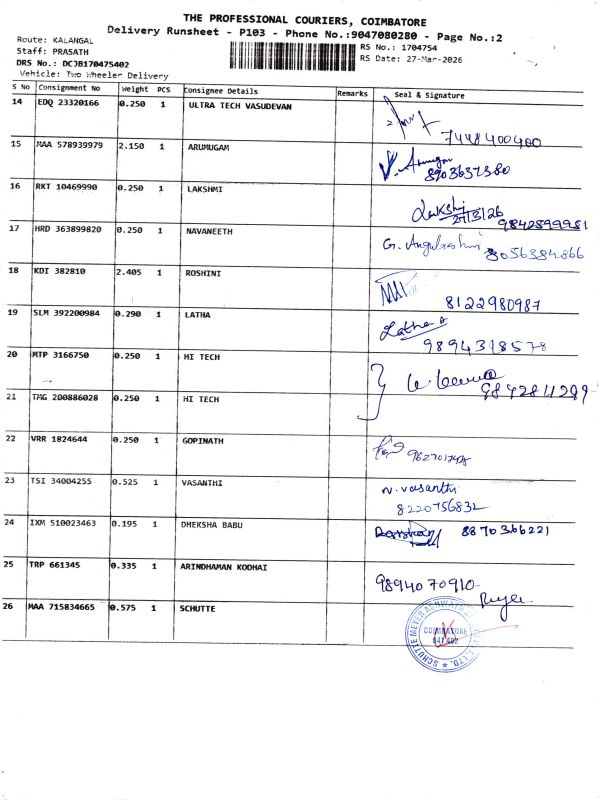 THE PROFESSIONAL COURIERS, COIMBATORE
Delivery Runsheet - P103 - Phone No.:9047080280 - Page No.:2
Route: KALANGAL
Staff: PRASATH
DRS No.: DCJB170475402
Vehicle: Two Wheeler Delivery
RS No.: 1704754
RS Date: 27-Mar-2026
S No Consignment No Weight PCS Consignee Details Remarks Seal & Signature
14 EDQ 23320166 0.250 1 ULTRA TECH VASUDEVAN 7448400400
15 MAA 578939979 2.150 1 ARUMUGAM V. Arumugam 8903637380
16 RKT 10469990 0.250 1 LAKSHMI Lakshmi 27/3/26 9842599981
17 HRD 363899820 0.250 1 NAVANEETH G. 8056384866
18 KDI 382810 2.405 1 ROSHINI 8122980987
19 SLM 392200984 0.290 1 LATHA Latha 9894318578
20 MTP 3166750 0.250 1 HI TECH
21 TMG 200886028 0.250 1 HI TECH 9842811299
22 VRR 1824644 0.250 1 GOPINATH
23 TSI 34004255 0.525 1 VASANTHI N. Vasanthi 8220756832
24 IXM 510023463 0.195 1 DHEKSHA BABU 8870366221
25 TRP 661345 0.335 1 ARINDHAMAN KODHAI 9894070910
26 MAA 715834665 0.575 1 SCHUTTE COIMBATORE